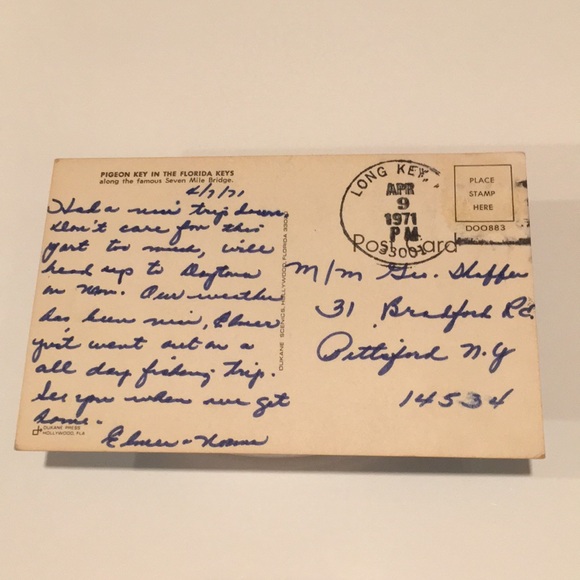 PIGEON KEY IN THE FLORIDA KEYS
along the famous Seven Mile Bridge.
4/7/71
Had a nice trip down
Don't care for this
part to much, will
head up to Daytona
on Mon. Our weather
has been nice, Elmer
just went out on a
all day fishing trip.
See you when we get
home.
Elmer + Norma
DUKANE PRESS
HOLLYWOOD, FLA
DUKANE SCENICS, HOLLYWOOD, FLORIDA
LONG KEY,
APR
9
1971
PM
33001
Post Card
PLACE
STAMP
HERE
DOO883
M/M Geo. Shaffer
31 Bradford Rd.
Pittsford N.Y
14534